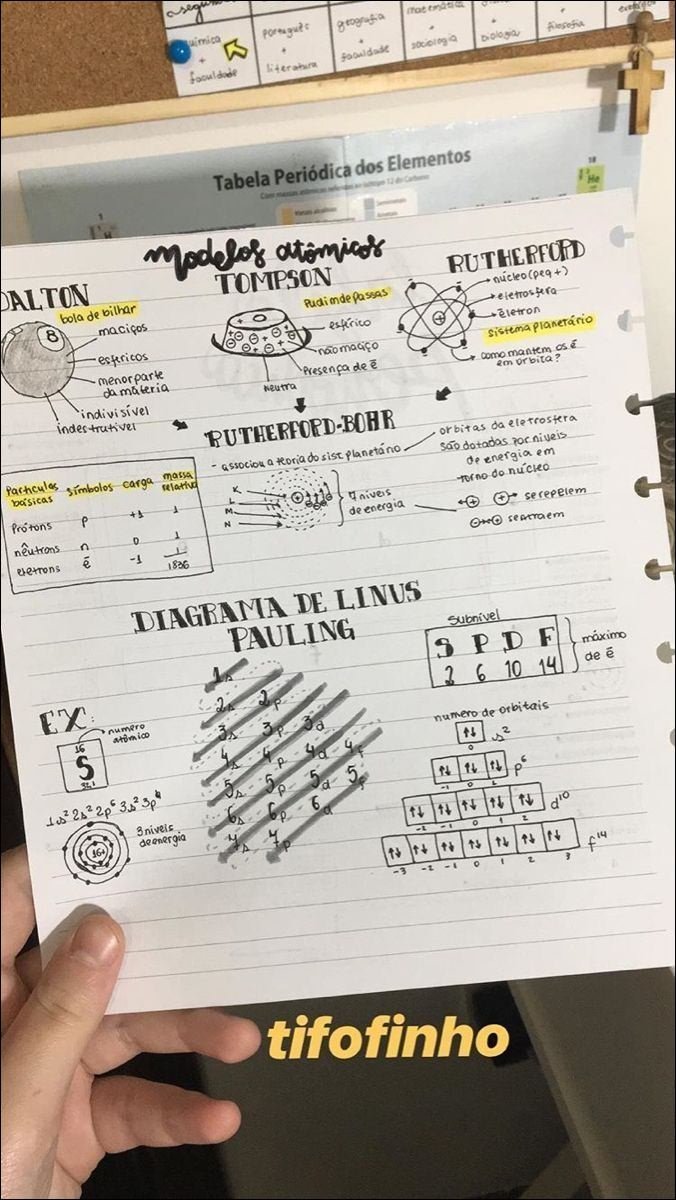 química
+
faculdade
português
+
literatura
geografia
+
faculdade
matemática
+
sociologia
+
biologia
+
filosofia
Tabela Periódica dos Elementos
Com massas atômicas referidas ao isótopo 12 do Carbono
Metais alcalinos
Semimetais
1
H
18
He
modelos atômicos
DALTON
bola de bilhar
8
maciços
esféricos
menor parte
da matéria
indivisível
indestrutível
TOMPSON
Pudim de passas
esférico
não maciço
Presença de ē
Neutra
RUTHERFORD
núcleo (peq +)
eletrosfera
életron
sistema planetário
como mantem os ē
em orbita?
RUTHERFORD-BOHR
- associou a teoria do sist. planetário
orbitas da eletrosfera
são dotadas por níveis
de energia em
torno do núcleo
K
L
M
N
7 níveis
de energia
se repelem
se atraem
Partículas básicas símbolos carga massa relativa
Prótons p +1 1
nêutrons n 0 1
eletrons ē -1 1/1836
DIAGRAMA DE LINUS
PAULING
1s
2s 2p
3s 3p 3d
4s 4p 4d 4f
5s 5p 5d 5f
6s 6p 6d
7s 7p
EX:
numero
atômico
16
S
32,1
1s² 2s² 2p⁶ 3s² 3p⁴
16+
3 níveis
de energia
Subnível
S P D F
2 6 10 14
máximo
de ē
numero de orbitais
↑↓ s²
0
↑↓ ↑↓ ↑↓ p⁶
-1 0 1
↑↓ ↑↓ ↑↓ ↑↓ ↑↓ d¹⁰
-2 -1 0 1 2
↑↓ ↑↓ ↑↓ ↑↓ ↑↓ ↑↓ ↑↓ f¹⁴
-3 -2 -1 0 1 2 3
tifofinho